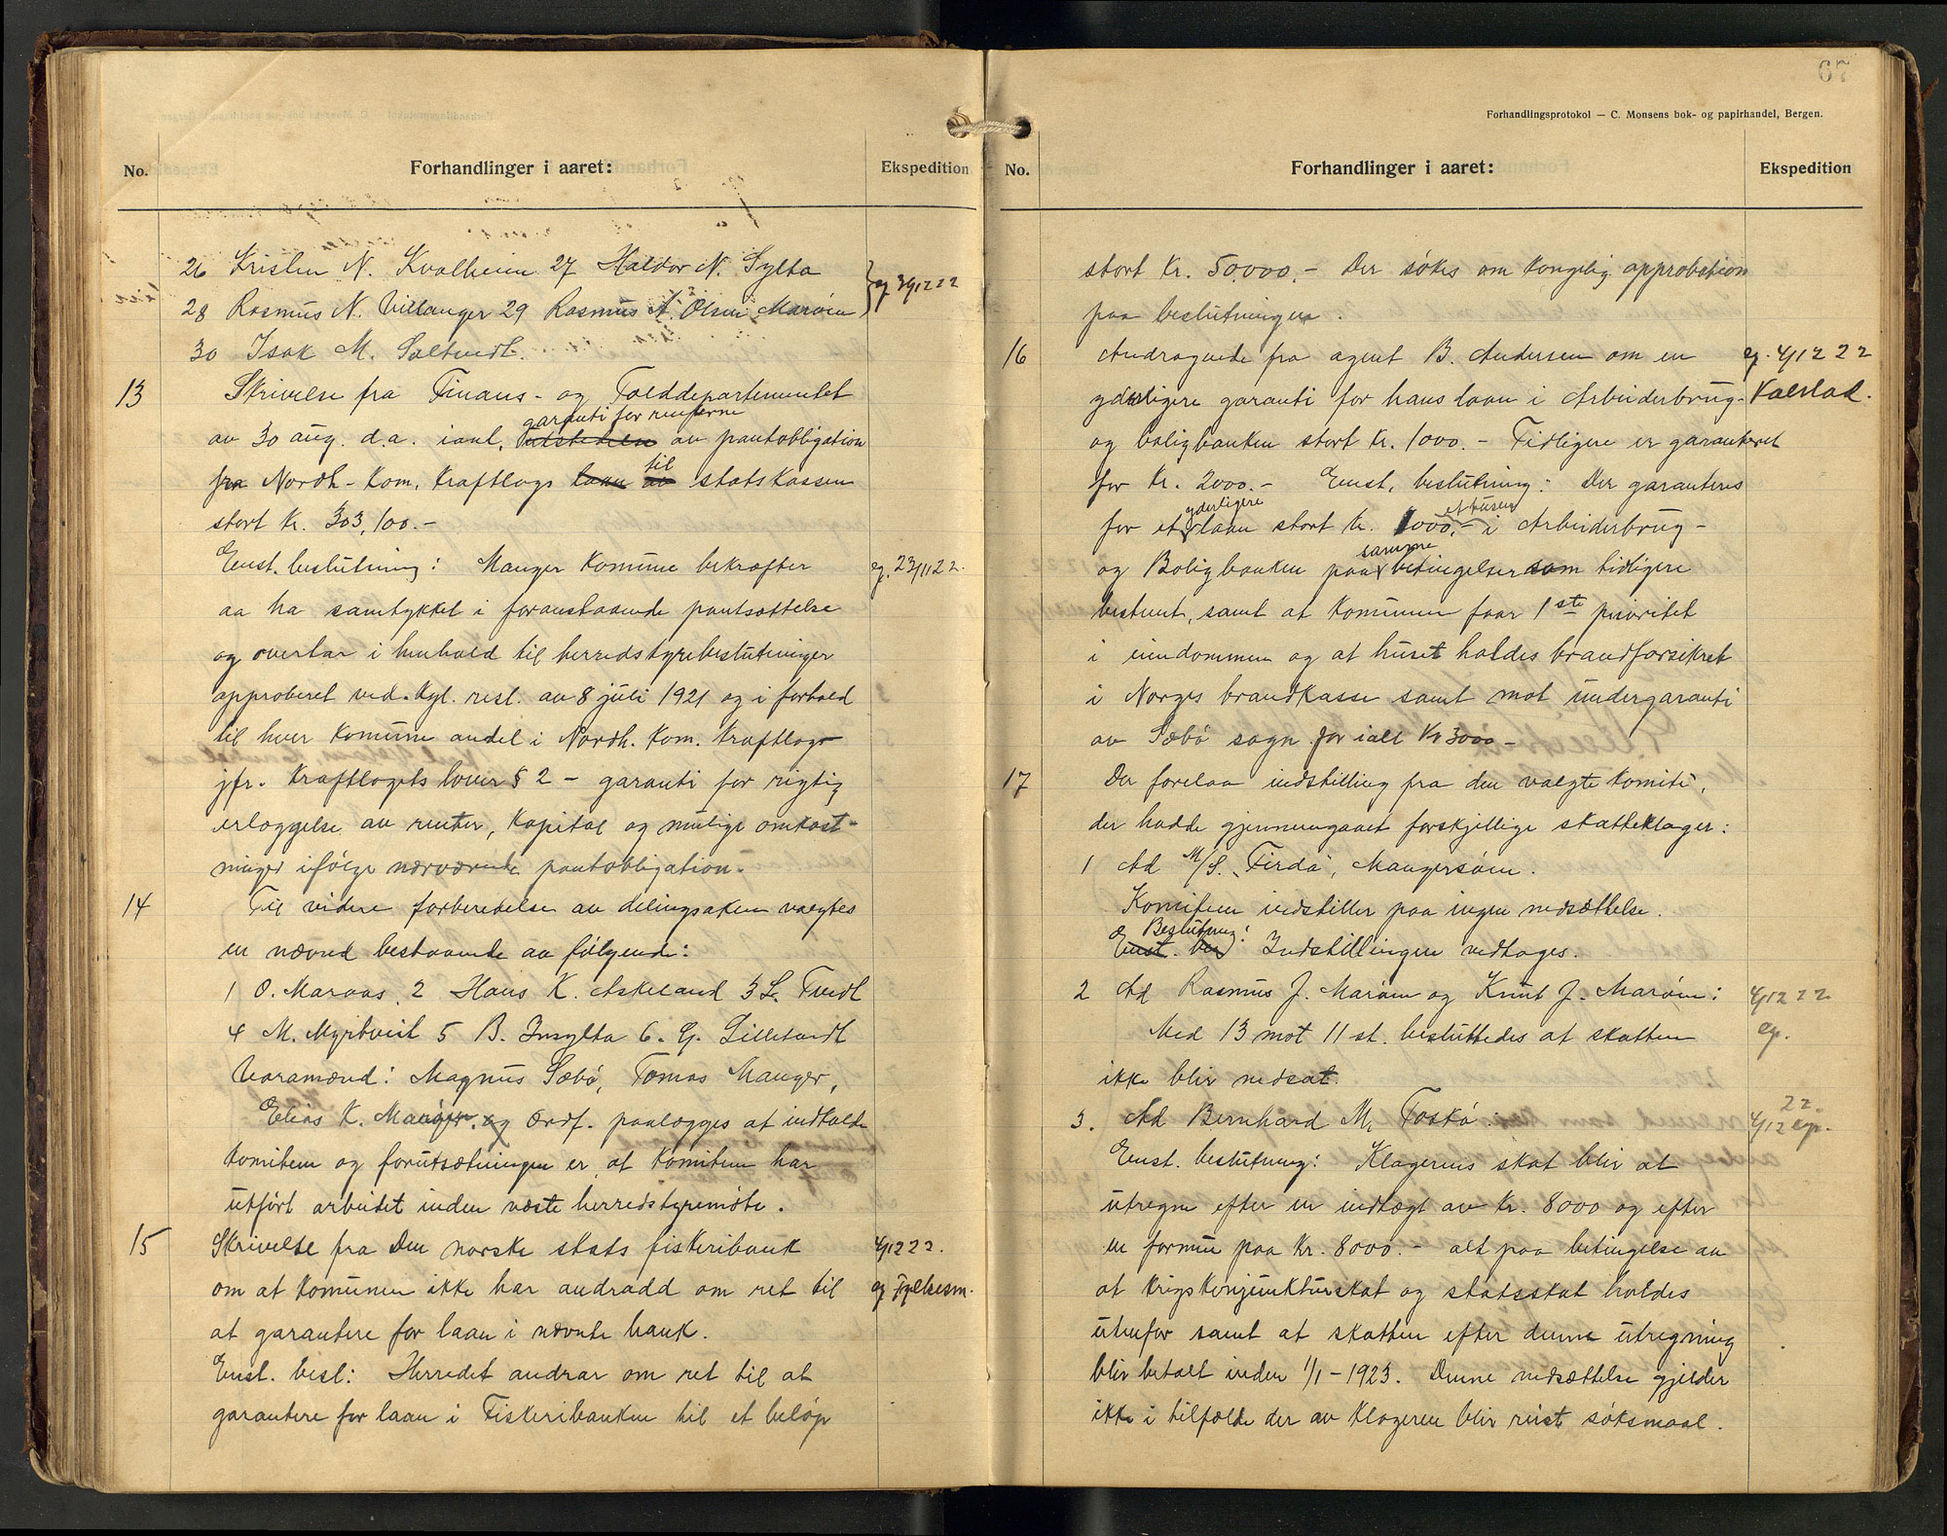 No.
Forhandlinger i aaret:
Ekspedition
26 Kristen N. Kvalheim 27 Haldor N. Sylta
28 Rasmus N. Villanger 29 Rasmus A. Olsen Marøen
30 Isak M. Saltvedt.
13 Skrivelse fra Finans- og Tolddepartementet
garanti for renterne
av 30 aug. d.a. ianl. utstedelse av pantobligation
til
fra Nordh-Kom. Kraftlags laan av statskassen
stort kr. 303,100.-
Enst. beslutning: Manger Komune bekræfter eg. 23/11 22.
aa ha samtykket i foranstaaende pantsættelse
og overtar i henhold til herredstyrebeslutninger
approberet ved. kgl. resl. av 8 juli 1921 og i forhold
til hver Komune andel i Nordh. Kom. Kraftlag
jfr. Kraftlagets lover § 2 - garanti for rigtig
erlæggelse av renter, Kapital og mulige omkost-
ninger ifølge nærværende pantobligation.
14 Til videre forberedelse av delingsaken valgtes
en nævnd bestaaende av følgende:
1 O. Maraas, 2 Hans K. Askeland 3 L. Tvedt
4 M. Myrtveit 5 B. Insylta 6. G. Lilletvedt
Varamænd: Magnus Sæbø, Tomas Manger,
Elias K. Manger. og Ordf. paalægges at indkalde
komiteen og forutsætningen er at komiteen har
utført arbeidet inden næste herredstyremøte.
15 Skrivelse fra Den norske stats fiskeribank 4/12 22.
om at Komunen ikke har andradd om ret til
at garantere for laan i nævnte bank.
Enst. besl: Herredet andrar om ret til at
garantere for laan i Fiskeribanken til et beløp
67
Forhandlingsprotokol — C. Monsens bok- og papirhandel, Bergen.
No.
Forhandlinger i aaret:
Ekspedition
stort kr. 50,000.- Der søkes om kongelig approbation
paa beslutningen.
16 Andragende fra agent B. Andersen om en eg. 4/12 22
yderligere garanti for hans laan i Arbeiderbrug- Kalstad.
og boligbanken stort kr. 1000.- Tidligere er garanteret
for kr. 2000.- Enst. beslutning: Der garanteres
yderligere ettusen
for et laan stort kr. 1000.- i Arbeiderbrug-
samme
og Boligbanken paa betingelser som tidligere
bestemt, samt at Komunen faar 1ste prioritet
i eiendommen og at huset holdes brandforsikret
i Norges brandkasse samt mot undergaranti
av Sæbø sogn for ialt Kr 3000-
17 Der forelaa indstilling fra den valgte komite,
der hadde gjennemgaaet forskjellige skatteklager:
1 Ad M/S. "Firda", Mangersøen.
Komiteen indstiller paa ingen nedsættelse.
Beslutning:
Enst. bes Indstillingen vedtages.
2 Ad Rasmus J. Marøen og Knut J. Marøen: 4/12 22
Med 13 mot 11 st. besluttedes at skatten eg.
ikke blir nedsat.
22.
3. Ad Bernhard M. Toskø: 4/12 eg.
Enst. beslutning: Klagerens skat blir at
utregne efter en indtægt av kr. 8000 og efter
en formue paa kr. 8000.- alt paa betingelse av
at krigskonjunkturskat og statsskat holdes
utenfor samt at skatten efter denne utregning
blir betalt inden 1/1-1923. Denne nedsættelse gjelder
ikke i tilfælde der av Klageren blir reist søksmaal.